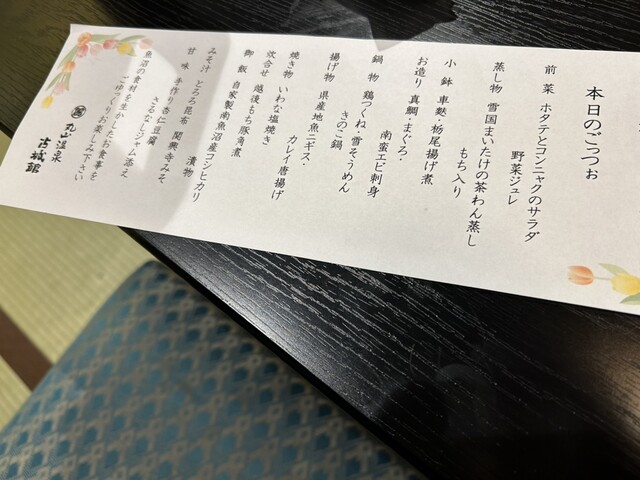 本日のごっつぉ
前菜 ホタテとコンニャクのサラダ
野菜ジュレ
蒸し物 雪国まいたけの茶わん蒸し
もち入り
小鉢 車麩・栃尾揚げ煮
お造り 真鯛・まぐろ・
南蛮エビ刺身
鍋物 鶏つくね・雪そうめん
きのこ鍋
揚げ物 県産地魚ニギス・
カレイ唐揚げ
焼き物 いわな塩焼き
炊合せ 越後もち豚角煮
御飯 自家製南魚沼産コシヒカリ
漬物
みそ汁 とろろ昆布 関興寺みそ
甘味 手作り杏仁豆腐
さるなしジャム添え
魚沼の食材を生かしたお食事を
ごゆっくりお楽しみ下さい
丸山温泉
古城館